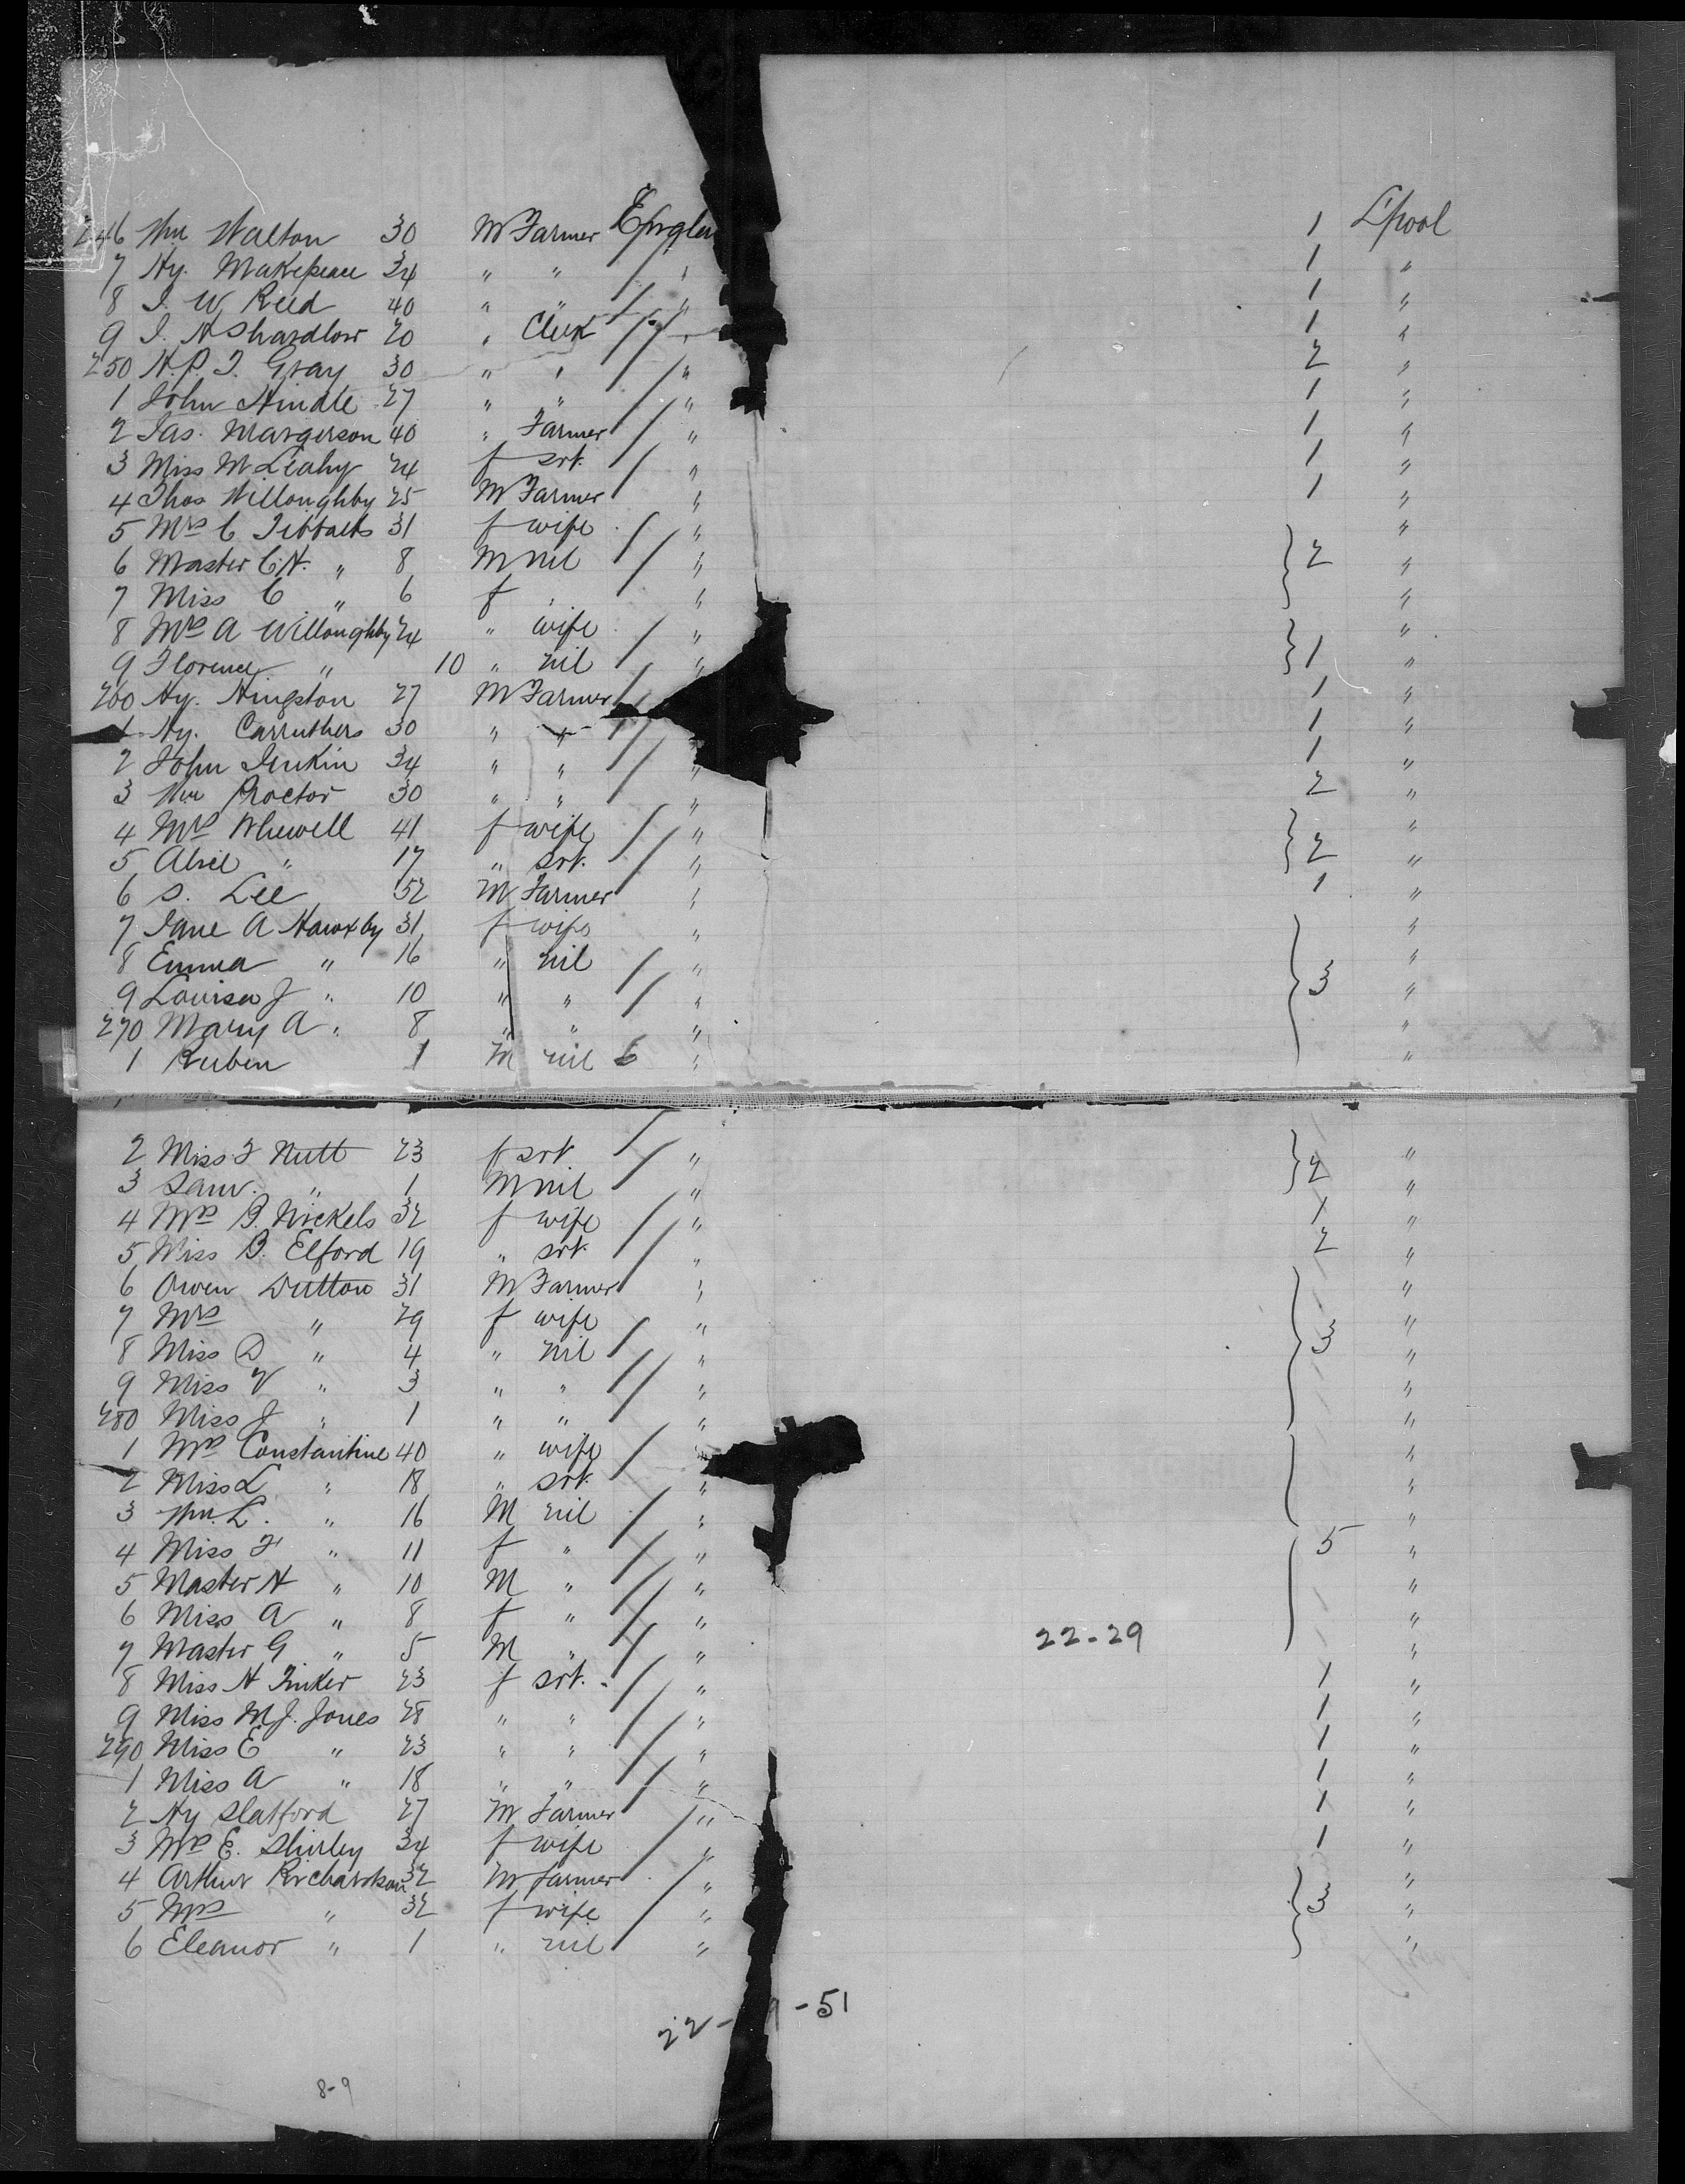 246 Wm Walton 30 M Farmer England 1 L'pool
7 Hy. Makepeace 34 " " " 1 "
8 J. W Reed 40 " " " 1 "
9 J. H Shardlow 20 " Clerk " 1 "
250 H. P. T. Gray 30 " " " 2 "
1 John Hindle 27 " " " 1 "
2 Jas. Margerson 40 " Farmer " 1 "
3 Miss M Leahy 24 f srt. " 1 "
4 Thos Willoughby 25 M Farmer " 1 "
5 Mrs C Tibbatts 31 f wife " "
6 Master C. H. " 8 M nil " 2 "
7 Miss C " 6 f " " "
8 Mrs A Willoughby 24 " wife " "
9 Florence " 10 " nil " 1 "
260 Hy. Hingston 27 M Farmer 1 "
1 Hy. Carruthers 30 " " 1 "
2 John Jenkin 34 " " " 1 "
3 Wm Proctor 30 " " " 2 "
4 Mrs Whewell 41 f wife " "
5 Alice " 17 " srt. " 2 "
6 S. Lee 52 M Farmer " 1 "
7 Jane A Hawxby 31 f wife " "
8 Emma " 16 " nil " "
9 Louisa J " 10 " " " 3 "
270 Mary A " 8 " " " "
1 Reuben 1 M nil 6 " "
2 Miss F Nutt 23 f srt " "
3 Saml. " 1 M nil " 2 "
4 Mrs B. Nickels 32 f wife " 1 "
5 Miss B. Elford 19 " srt. " 2 "
6 Owen Dutton 31 M Farmer " "
7 Mrs " 29 f wife " "
8 Miss D " 4 " nil " 3 "
9 Miss V " 3 " " " "
280 Miss J " 1 " " " "
1 Mrs Constantine 40 " wife " "
2 Miss L " 18 " srt. " "
3 Wm. L. " 16 M nil " "
4 Miss F " 11 f " " 5 "
5 Master H " 10 M " " "
6 Miss A " 8 f " " "
22-29
7 Master G " 5 M " " "
8 Miss H Tinker 23 f srt. " 1 "
9 Miss M. J. Jones 28 " " " 1 "
290 Miss E " 23 " " " 1 "
1 Miss A " 18 " " " 1 "
2 Hy Slatford 27 M Farmer " 1 "
3 Mrs E. Shirley 34 f wife " 1 "
4 Arthur Richardson 32 M farmer " "
5 Mrs " 32 f wife " 3 "
6 Eleanor " 1 " nil " "
22- 9 -51
8-9